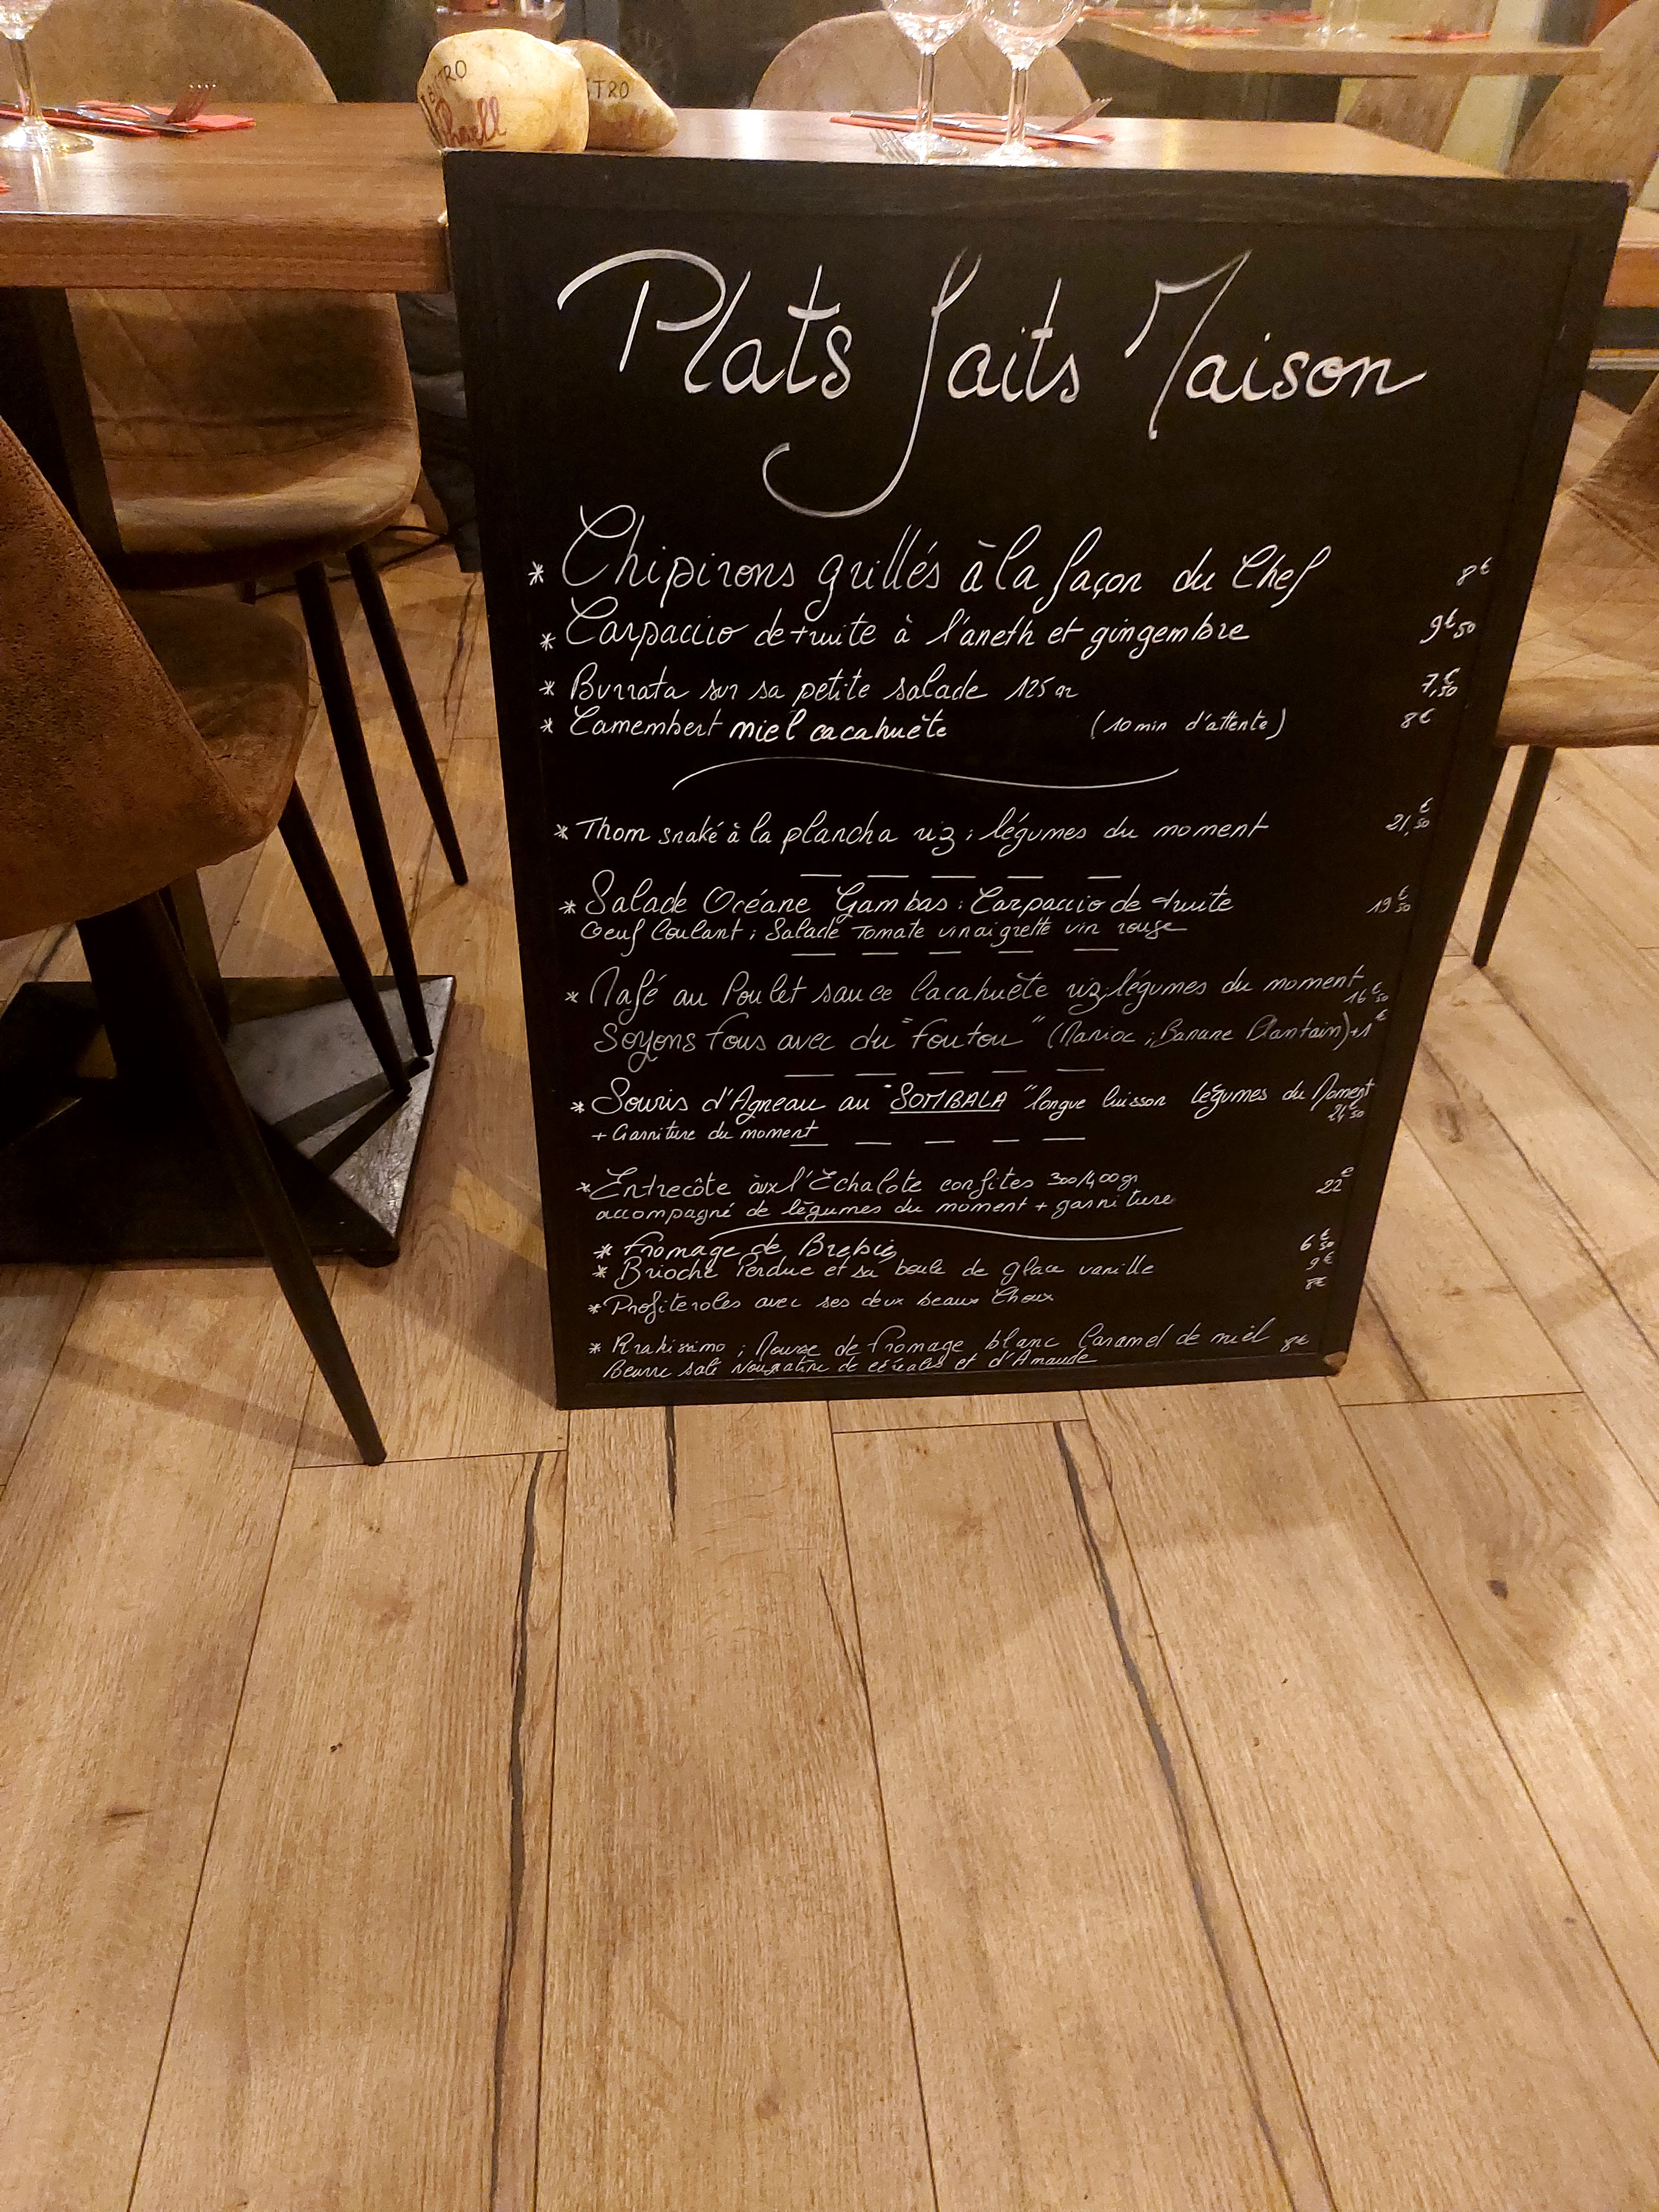 BISTRO
STRO
Plats faits Maison
* Chipirons grillés à la façon du Chef 8€
* Carpaccio de truite à l'aneth et gingembre 9€50
* Burrata sur sa petite salade 125 gr 7,€50
* Camembert miel cacahuète (10 min d'attente) 8€
* Thom snaké à la plancha riz ; légumes du moment 21,€50
* Salade Océane Gambas ; Carpaccio de truite 19€50
Oeuf Coulant ; Salade Tomate vinaigrette vin rouge
* Mafé au Poulet sauce Cacahuète riz ; légumes du moment 16€50
Soyons fous avec du "Foutou" (Manioc ; Banane Plantain) +1€
* Souris d'Agneau au "SOMBALA" longue Cuisson Légumes du Moment 24€50
+ Garniture du moment
* Entrecôte aux l'Echalote confites 300/400 gr 22€
accompagné de légumes du moment + garniture
* Fromage de Brebis 6€50
* Brioche Perdue et sa boule de glace vanille 9€
* Profiteroles avec ses deux beaux Choux 8€
* ; Mousse de fromage blanc Caramel de miel 8€
Beurre salé Nougatine de céréales et d'Amande